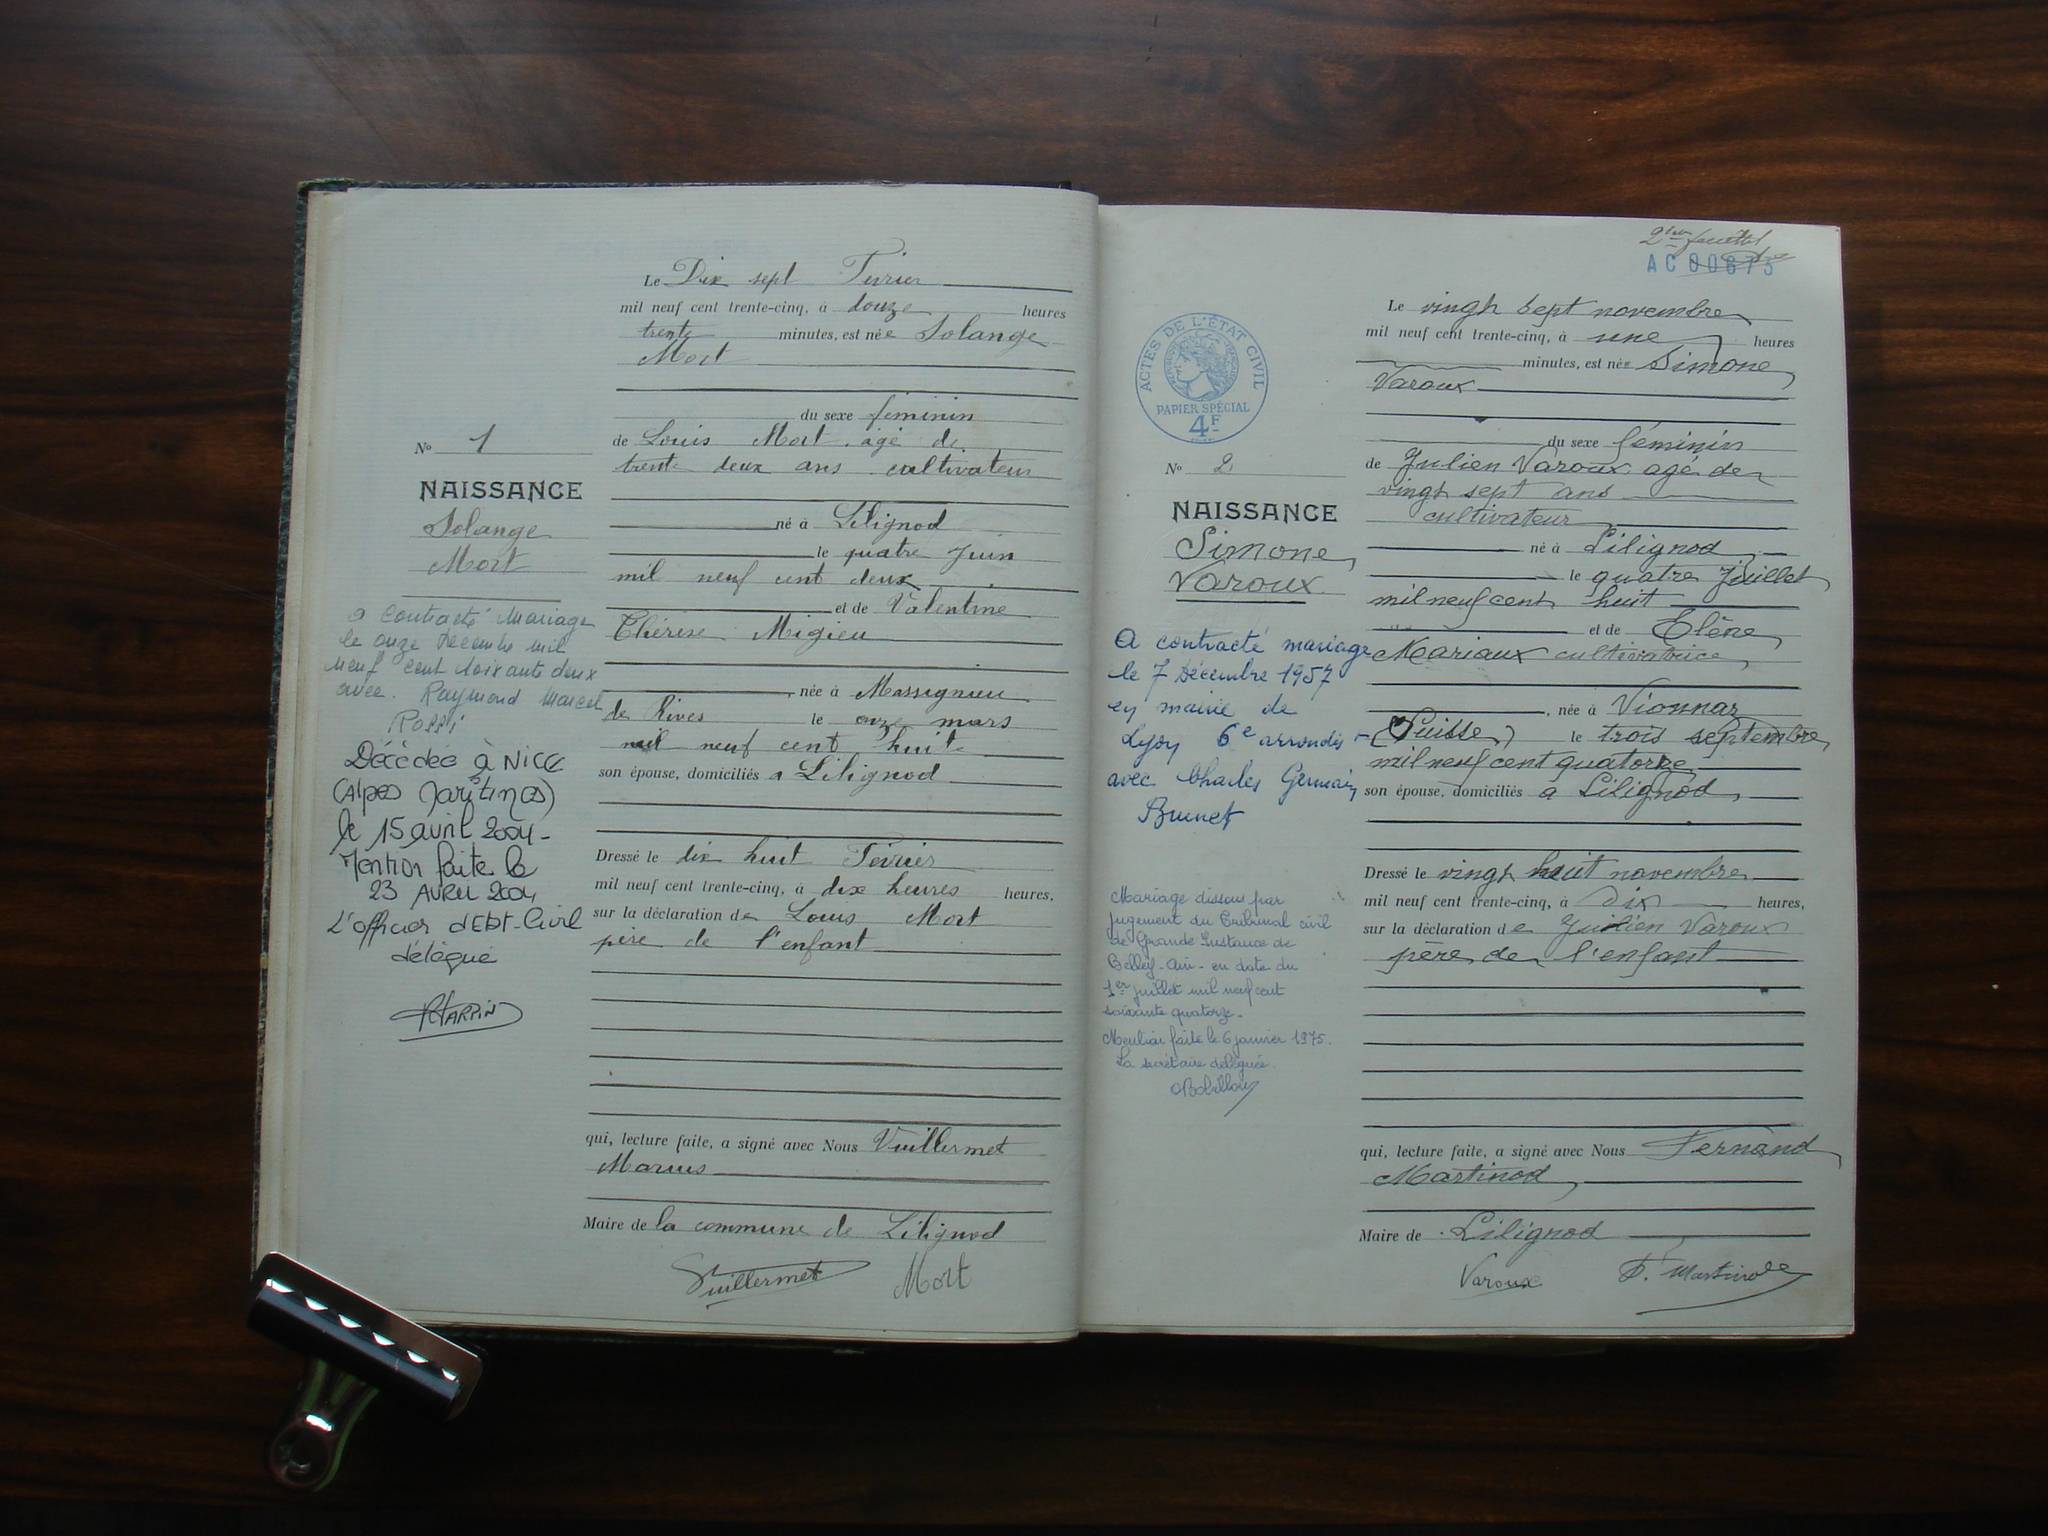 Le Dix sept Février
mil neuf cent trente-cinq, à douze heures
trente minutes, est née Solange
Mort
du sexe féminin
de Louis Mort agé de
trente deux ans cultivateur
né à Lilignod
le quatre Juin
mil neuf cent deux
et de Valentine
Thérèse Migieu
née à Massignieu
de Rives le onze mars
mil neuf cent huit
son épouse, domiciliés a Lilignod
Dressé le dix huit Février
mil neuf cent trente-cinq, à dix heures heures,
sur la déclaration de Louis Mort
père de l'enfant
qui, lecture faite, a signé avec Nous Vuillermet
Marius
Maire de la commune de Lilignod
Vuillermet Mort
No 1
NAISSANCE
Solange
Mort
a contracté mariage
le onze Décembre mil
neuf cent soixante deux
avec Raymond Marcel
Rossi
Décédée à NICE
(Alpes Maritimes)
le 15 avril 2004-
Mention faite le
23 AVRIL 2004
L'officier d'Etat-Civil
délégué
AC 00673
ACTES DE L'ÉTAT CIVIL
PAPIER SPÉCIAL
4F
No 2
NAISSANCE
Simone
Varoux
A contracté mariage
le 7 Décembre 1957
en mairie de
Lyon 6e arrondis-
avec Charles Germain
Brunet
Mariage dissous par
jugement du Tribunal civil
de Grande Instance de
Belley-Ain- en date du
1er juillet mil neuf cent
soixante quatorze-
Mention faite le 6 janvier 1975.
La secrétaire déléguée.
Le vingt sept novembre
mil neuf cent trente-cinq, à une heures
minutes, est née Simone
Varoux
du sexe féminin
de Julien Varoux agé de
vingt sept ans
cultivateur
né à Lilignod
le quatre Juillet
mil neuf cent huit
et de Elène
Mariaux cultivatrice
, née à Vionnaz
(Suisse) le trois septembre
mil neuf cent quatorze
son épouse, domiciliés a Lilignod
Dressé le vingt huit novembre
mil neuf cent trente-cinq, à Dix heures,
sur la déclaration de Julien Varoux
père de l'enfant
qui, lecture faite, a signé avec Nous Fernand
Martinod
Maire de Lilignod
Varoux F. Martinod